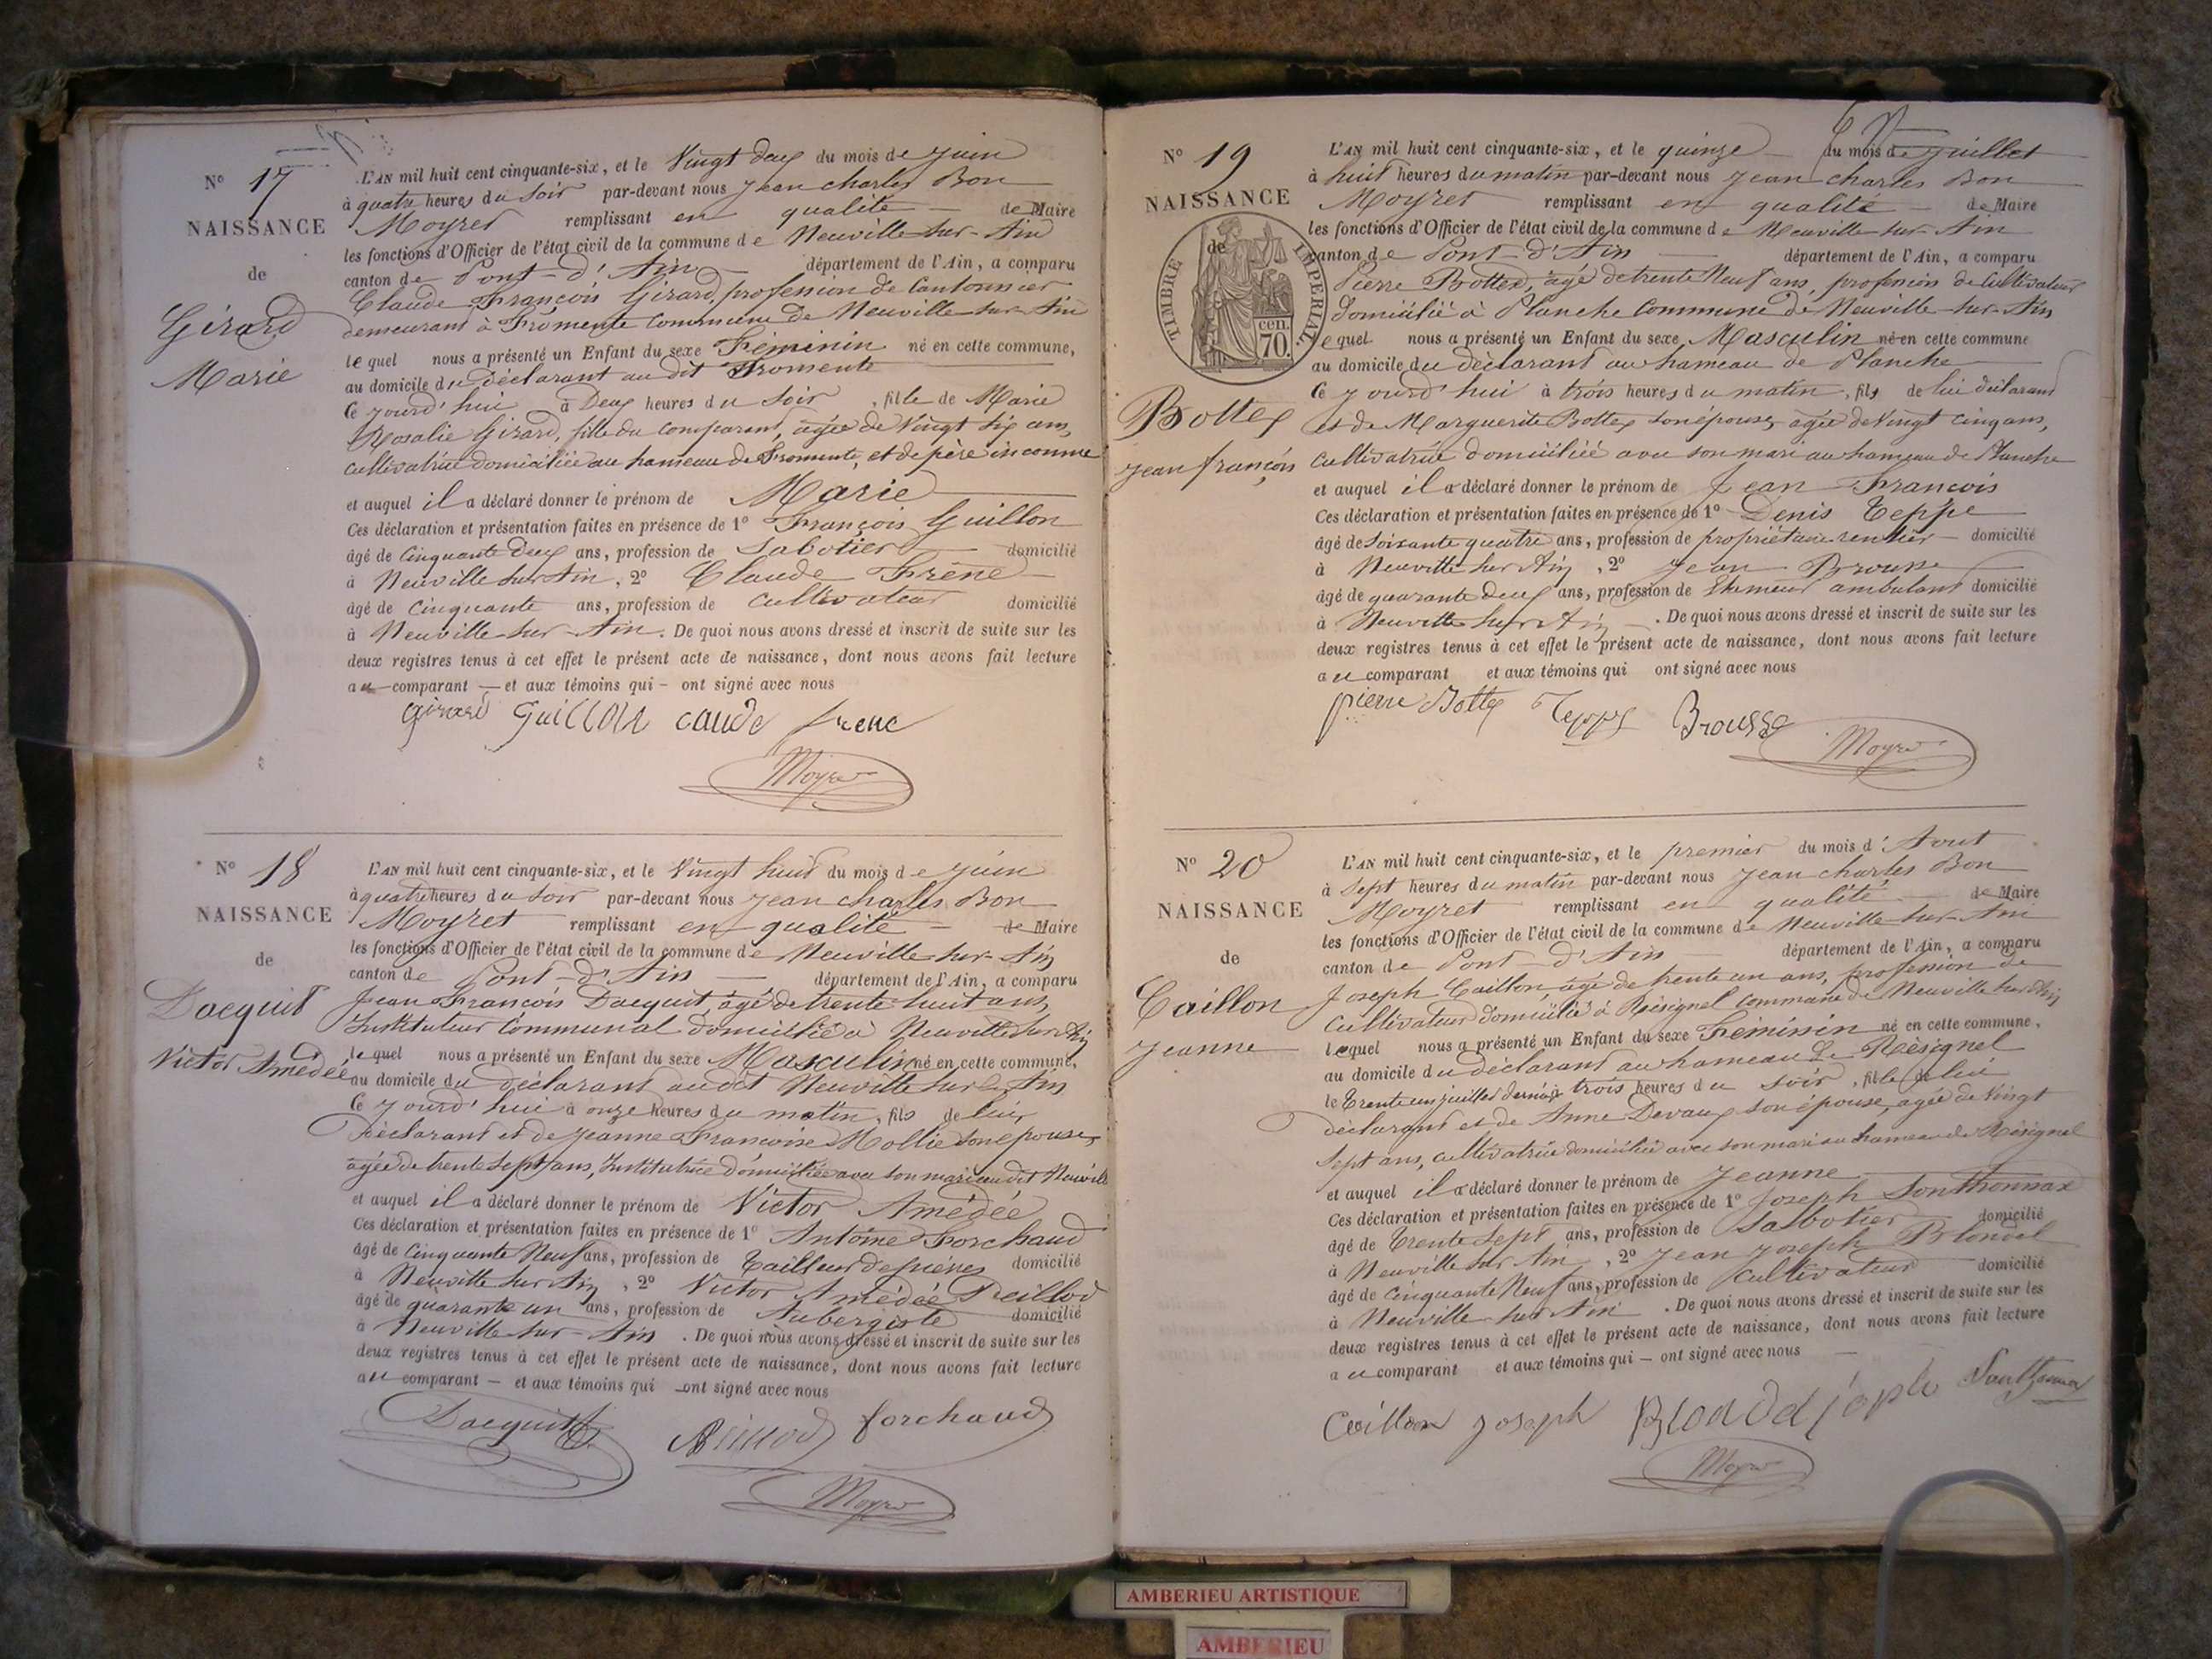 N° 17
NAISSANCE
de
Girard
Marie
L'AN mil huit cent cinquante-six, et le Vingt deux du mois de Juin
à quatre heures du Soir par-devant nous Jean Charles Bon
Moyret remplissant en qualité de Maire
les fonctions d'Officier de l'état civil de la commune de Neuville-sur-Ain
canton de Pont-d'Ain département de l'Ain, a comparu
Claude François Girard, profession de Cantonnier
demeurant à Fromente Commune de Neuville-sur-Ain
lequel nous a présenté un Enfant du sexe Féminin né en cette commune,
au domicile du Déclarant au dit Fromente
Ce jourd'hui à Deux heures du Soir, fille de Marie
Rosalie Girard, fille du comparant, agée de Vingt six ans,
cultivatrice domiciliée au hameau de Fromente, et de père inconnu
et auquel il a déclaré donner le prénom de Marie
Ces déclaration et présentation faites en présence de 1° François Guillon
âgé de Cinquante Deux ans, profession de Sabotier domicilié
à Neuville sur Ain, 2° Claude Frène
âgé de Cinquante ans, profession de Cultivateur domicilié
à Neuville-sur-Ain. De quoi nous avons dressé et inscrit de suite sur les
deux registres tenus à cet effet le présent acte de naissance, dont nous avons fait lecture
au comparant et aux témoins qui ont signé avec nous
Girard Guillon caude frene
Moyret
N° 18
NAISSANCE
de
Dacquit
Victor Amédée
L'AN mil huit cent cinquante-six, et le Vingt huit du mois de Juin
à quatre heures du Soir par-devant nous Jean Charles Bon
Moyret remplissant en qualité de Maire
les fonctions d'Officier de l'état civil de la commune de Neuville-sur-Ain
canton de Pont-d'Ain département de l'Ain, a comparu
Jean François Dacquit, âgé de trente huit ans,
Instituteur Communal domicilié à Neuville sur Ain
lequel nous a présenté un Enfant du sexe Masculin né en cette commune,
au domicile du Déclarant audit Neuville sur Ain
Ce jourd'hui à onze heures du matin, fils de lui,
Déclarant et de Jeanne Françoise Mollie son épouse,
agée de trente sept ans, Institutrice domiciliée avec son mari audit Neuville
et auquel il a déclaré donner le prénom de Victor Amédée
Ces déclaration et présentation faites en présence de 1° Antoine Forchaud
âgé de Cinquante Neuf ans, profession de Tailleur de pierres domicilié
à Neuville sur Ain, 2° Victor Amédée Reillod
âgé de quarante un ans, profession de Aubergiste domicilié
à Neuville-sur-Ain. De quoi nous avons dressé et inscrit de suite sur les
deux registres tenus à cet effet le présent acte de naissance, dont nous avons fait lecture
au comparant et aux témoins qui ont signé avec nous
Dacquit Reillod forchaud
Moyret
N° 19
NAISSANCE
de
TIMBRE IMPERIAL
cen.
70.
Bottex
Jean françois
L'AN mil huit cent cinquante-six, et le quinze du mois de Juillet
à huit heures du matin par-devant nous Jean Charles Bon
Moyret remplissant en qualité de Maire
les fonctions d'Officier de l'état civil de la commune de Neuville-sur-Ain
canton de Pont-d'Ain département de l'Ain, a comparu
Pierre Bottex, âgé de trente Neuf ans, profession de Cultivateur
Domicilié à Planche Commune de Neuville-sur-Ain
lequel nous a présenté un Enfant du sexe Masculin né en cette commune
au domicile du déclarant au hameau de Planche
Ce jourd'hui à trois heures du matin, fils de lui déclarant
et de Marguerite Bottex son épouse, agée de Vingt cinq ans,
Cultivatrice domiciliée avec son mari au hameau de Planche
et auquel il a déclaré donner le prénom de Jean François
Ces déclaration et présentation faites en présence de 1° Denis Teppe
âgé de Soixante quatre ans, profession de propriétaire rentier domicilié
à Neuville sur Ain, 2° Jean Brousse
âgé de quarante deux ans, profession de Etameur ambulant domicilié
à Neuville sur Ain. De quoi nous avons dressé et inscrit de suite sur les
deux registres tenus à cet effet le présent acte de naissance, dont nous avons fait lecture
au comparant et aux témoins qui ont signé avec nous
pierre Bottex Teppe Brousse
Moyret
N° 20
NAISSANCE
de
Caillon
Jeanne
L'AN mil huit cent cinquante-six, et le premier du mois d'Aout
à Sept heures du matin par-devant nous Jean Charles Bon
Moyret remplissant en qualité de Maire
les fonctions d'Officier de l'état civil de la commune de Neuville-sur-Ain
canton de Pont-d'Ain département de l'Ain, a comparu
Joseph Caillon, âgé de trente un ans, profession de
Cultivateur Domicilié à Résignel Commune de Neuville sur Ain
lequel nous a présenté un Enfant du sexe Féminin né en cette commune,
au domicile du déclarant au hameau de Résignel
le Trente un juillet dernier à trois heures du soir, fille de lui
déclarant et de Anne Devaux son épouse, agée de Vingt
Sept ans, cultivatrice domiciliée avec son mari au hameau de Résignel
et auquel il a déclaré donner le prénom de Jeanne
Ces déclaration et présentation faites en présence de 1° Joseph Sonthonnax
âgé de Trente Sept ans, profession de Sabotier domicilié
à Neuville sur Ain, 2° Jean Joseph Blondel
âgé de Cinquante Neuf ans, profession de Cultivateur domicilié
à Neuville sur Ain. De quoi nous avons dressé et inscrit de suite sur les
deux registres tenus à cet effet le présent acte de naissance, dont nous avons fait lecture
au comparant et aux témoins qui ont signé avec nous
Caillon Joseph Sonthonnax
Moyret
AMBERIEU ARTISTIQUE
AMBERIEU